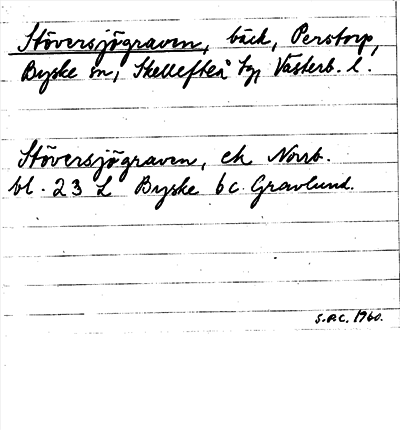 Stöversjögraven, bäck, Perstorp,
Byske sn, Skellefteå tg, Västerb. l.
Stöversjögraven, ek Norrb.
bl. 23 L Byske 6c. Gravlund.
1960.